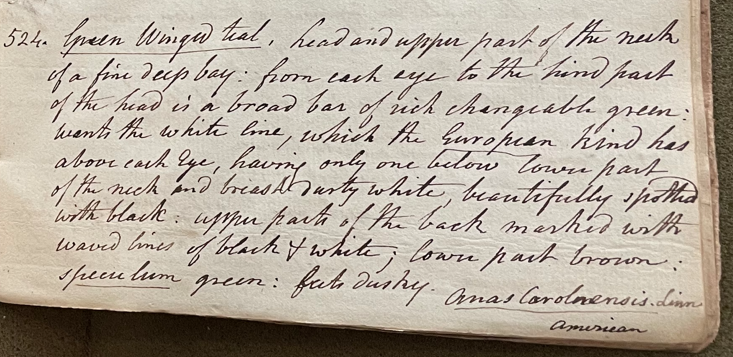 524. Green Winged teal. head and upper part of the neck
of a fine deep bay: from each eye to the hind part
of the head is a broad bar of rich changeable green:
wants the white line, which the European kind has
above each Eye, having only one below lower part
of the neck and breast dusty white, beautifully spotted
with black: upper parts of the back marked with
waved lines of black & white; lower part brown:
speculum green: feets dusky. Anas Carolinensis. Linn
American